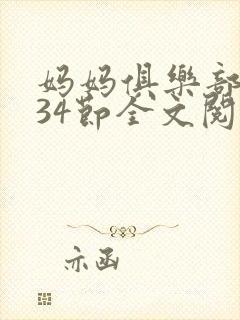 妈妈俱樂部
34節全文閱
亦函